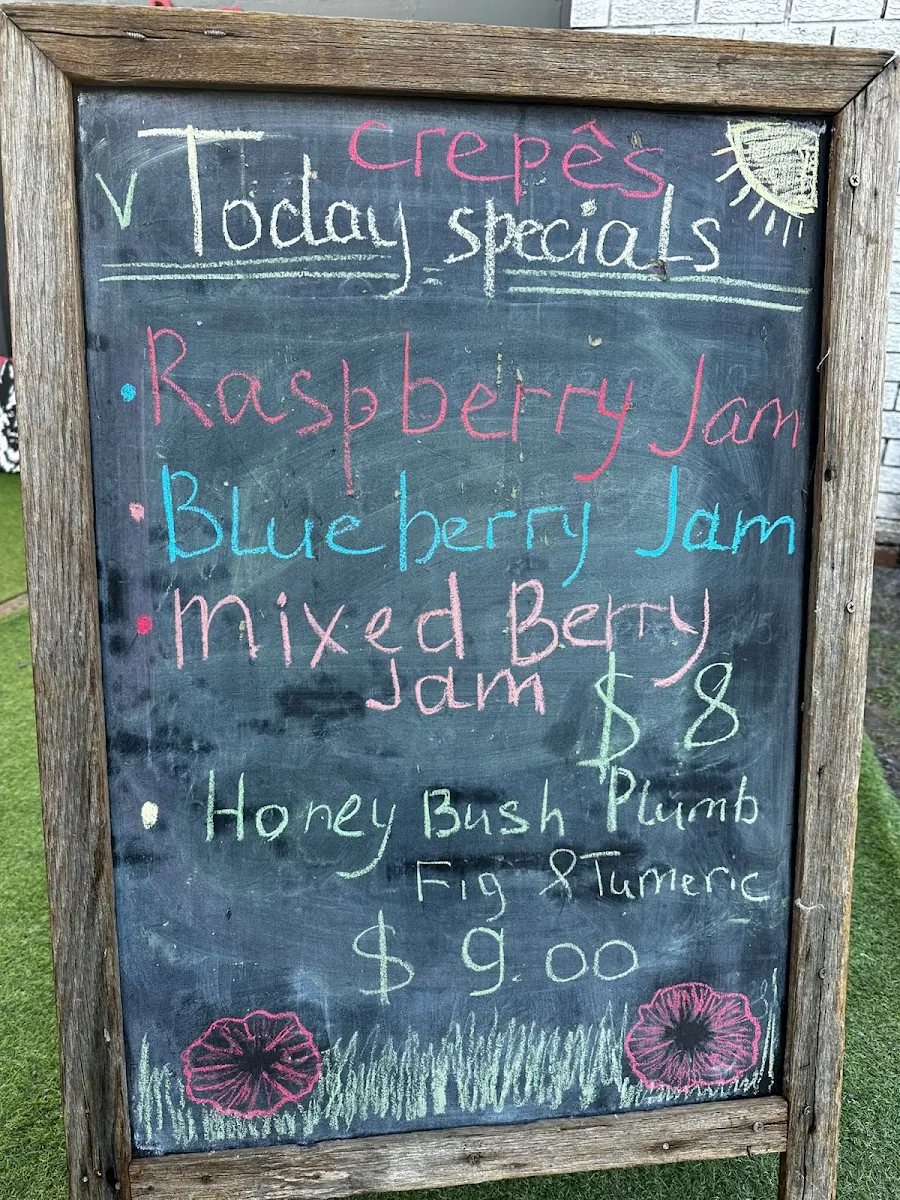 crepês
V Today specials
• Raspberry Jam
• Blueberry Jam
• Mixed Berry
Jam
$ 8
• Honey Bush Plumb
Fig & Tumeric
$ 9.00